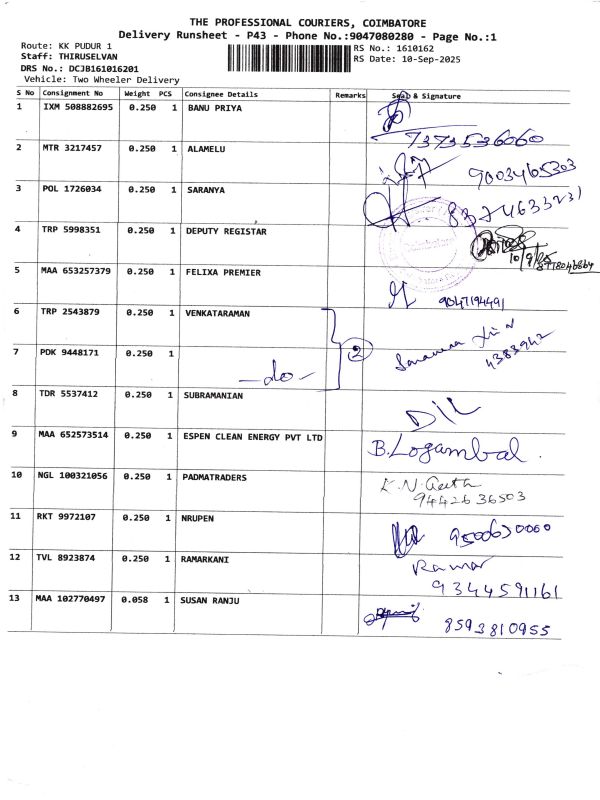 THE PROFESSIONAL COURIERS, COIMBATORE
Delivery Runsheet - P43 - Phone No.:9047080280 - Page No.:1
Route: KK PUDUR 1
RS No.: 1610162
Staff: THIRUSELVAN
RS Date: 10-Sep-2025
DRS No.: DCJB161016201
Vehicle: Two Wheeler Delivery
S No Consignment No Weight PCS Consignee Details Remarks Seal & Signature
1 IXM 508882695 0.250 1 BANU PRIYA
7373536060
2 MTR 3217457 0.250 1 ALAMELU
9003465303
3 POL 1726034 0.250 1 SARANYA
8374633231
4 TRP 5998351 0.250 1 DEPUTY REGISTAR
10/9/25
5 MAA 653257379 0.250 1 FELIXA PREMIER
9047194491
6 TRP 2543879 0.250 1 VENKATARAMAN
2
7 PDK 9448171 0.250 1
-do-
4383942
8 TDR 5537412 0.250 1 SUBRAMANIAN
DIL
9 MAA 652573514 0.250 1 ESPEN CLEAN ENERGY PVT LTD
B.Logambal.
10 NGL 100321056 0.250 1 PADMATRADERS
K.N.Geetha
9442636503
11 RKT 9972107 0.250 1 NRUPEN
9500630060
12 TVL 8923874 0.250 1 RAMARKANI
Ramar
9344591161
13 MAA 102770497 0.058 1 SUSAN RANJU
8593810955